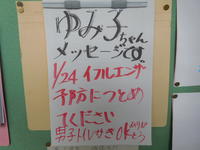 ゆみ子ちゃん
メッセージです
1/24 インフルエンザ
予防につとめ
てください
男子トイレ